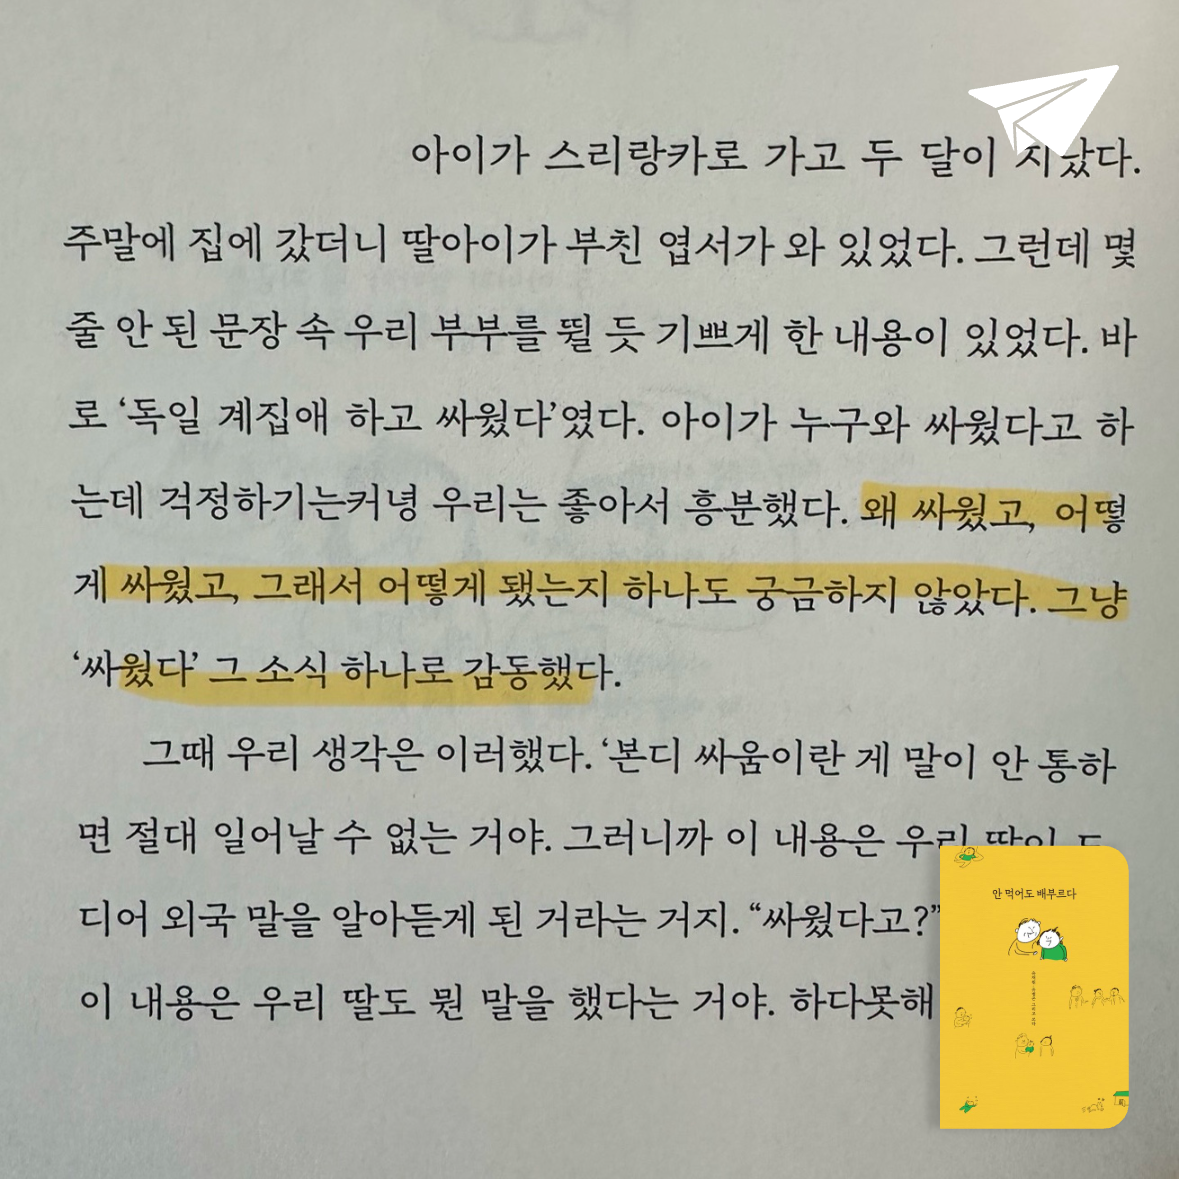 아이가 스리랑카로 가고 두 달이 지났다.
주말에 집에 갔더니 딸아이가 부친 엽서가 와 있었다. 그런데 몇
줄 안 된 문장 속 우리 부부를 뛸 듯 기쁘게 한 내용이 있었다. 바
로 ‘독일 계집애 하고 싸웠다’였다. 아이가 누구와 싸웠다고 하
는데 걱정하기는커녕 우리는 좋아서 흥분했다. 왜 싸웠고, 어떻
게 싸웠고, 그래서 어떻게 됐는지 하나도 궁금하지 않았다. 그냥
‘싸웠다’ 그 소식 하나로 감동했다.
그때 우리 생각은 이러했다. ‘본디 싸움이란 게 말이 안 통하
면 절대 일어날 수 없는 거야. 그러니까 이 내용은 우리 딸이
디어 외국 말을 알아듣게 된 거라는 거지. “싸웠다고?”
이 내용은 우리 딸도 뭔 말을 했다는 거야. 하다못해
안 먹어도 배부르다